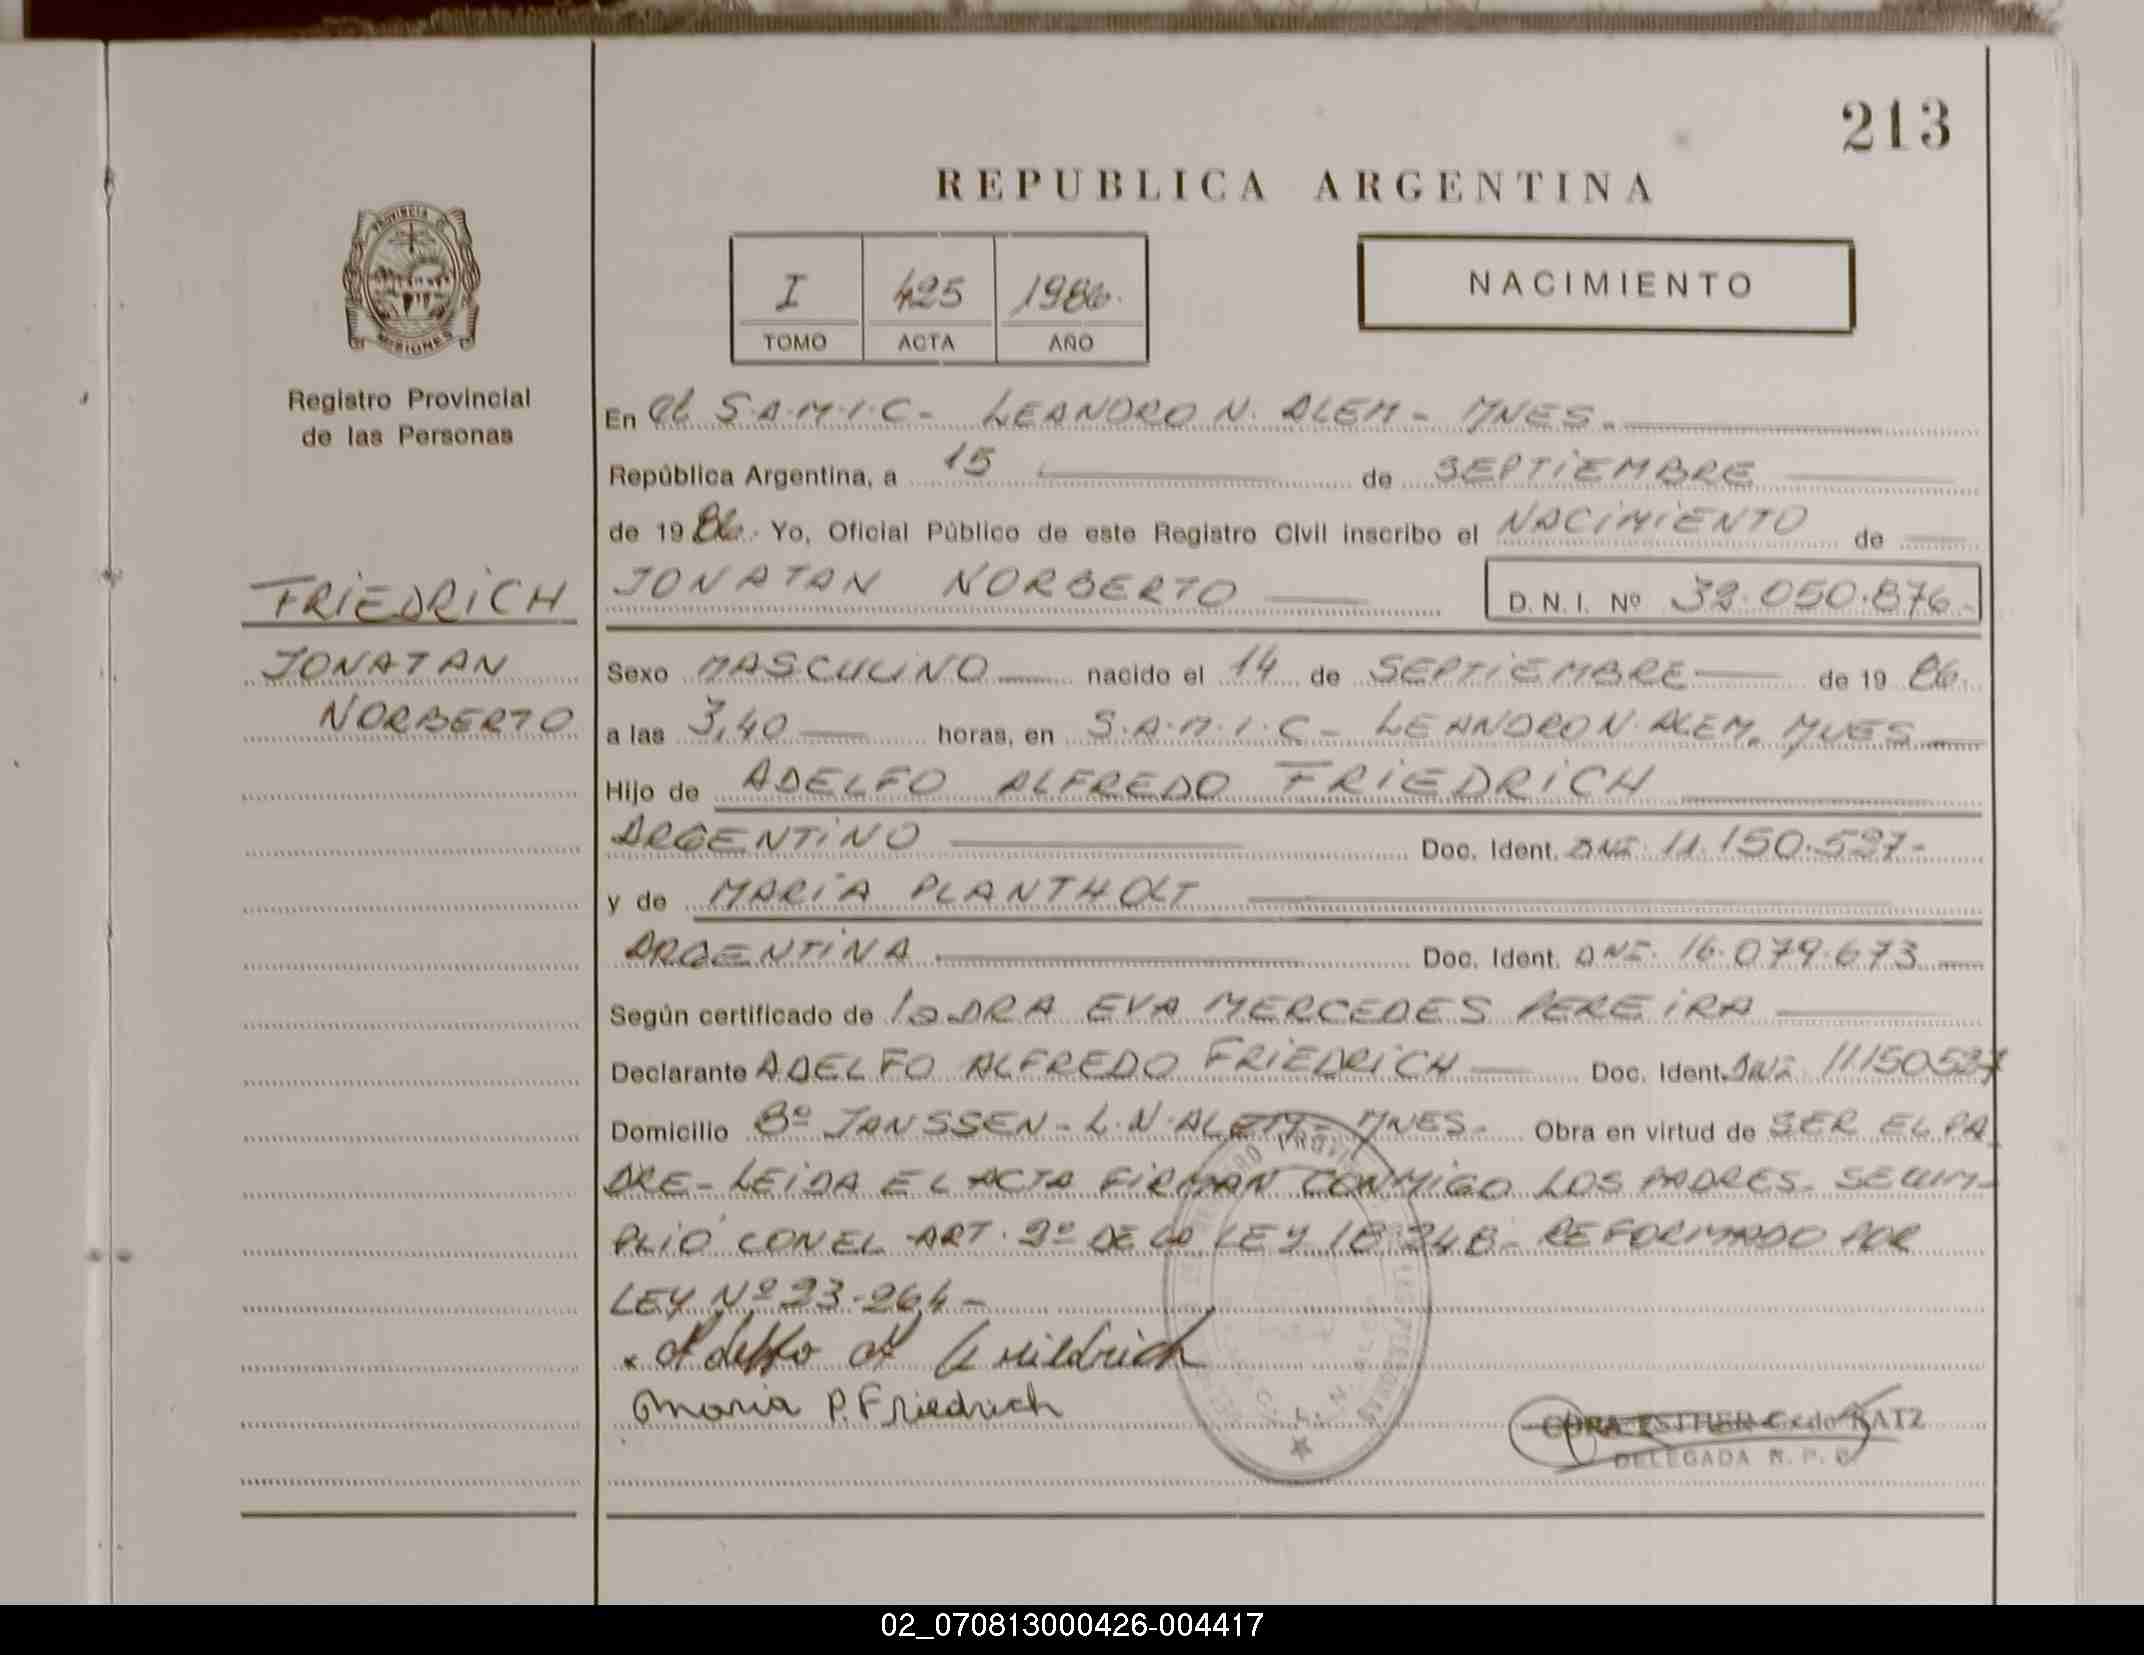 213
REPUBLICA ARGENTINA
PROVINCIA DE
MISIONES
I 425 1986.
TOMO ACTA AÑO
NACIMIENTO
Registro Provincial
de las Personas
En el S.A.M.I.C- LEANDRO N. ALEM- MNES.
República Argentina, a 15 de SEPTIEMBRE
de 1986. Yo, Oficial Público de este Registro Civil inscribo el NACIMIENTO de
FRIEDRICH
JONATAN NORBERTO D. N. I. Nº 32.050.876-
JONATAN
NORBERTO
Sexo MASCULINO nacido el 14 de SEPTIEMBRE de 1986.
a las 3,40 horas, en S.A.M.I.C- LEANDRO N. ALEM. MNES
Hijo de ADELFO ALFREDO FRIEDRICH
ARGENTINO Doc. Ident. DNI. 11.150.527-
y de MARIA PLANTHOLT
ARGENTINA Doc. Ident. DNI. 16.079.673
Según certificado de la DRA EVA MERCEDES PEREIRA
Declarante ADELFO ALFREDO FRIEDRICH Doc. Ident. DNI 11150527
Domicilio Bº JANSSEN- L.N. ALEM- MNES- Obra en virtud de SER EL PA
DRE- LEIDA EL ACTA FIRMAN CONMIGO LOS PADRES- SE CUM-
PLIÓ CON EL ART. 2º DE LA LEY 18.248- REFORMADO POR
LEY Nº 23-264-
Adelfo A Friedrich
Maria P. Friedrich
CORA ESTHER G. de RATZ
DELEGADA R. P. P.
02_070813000426-004417